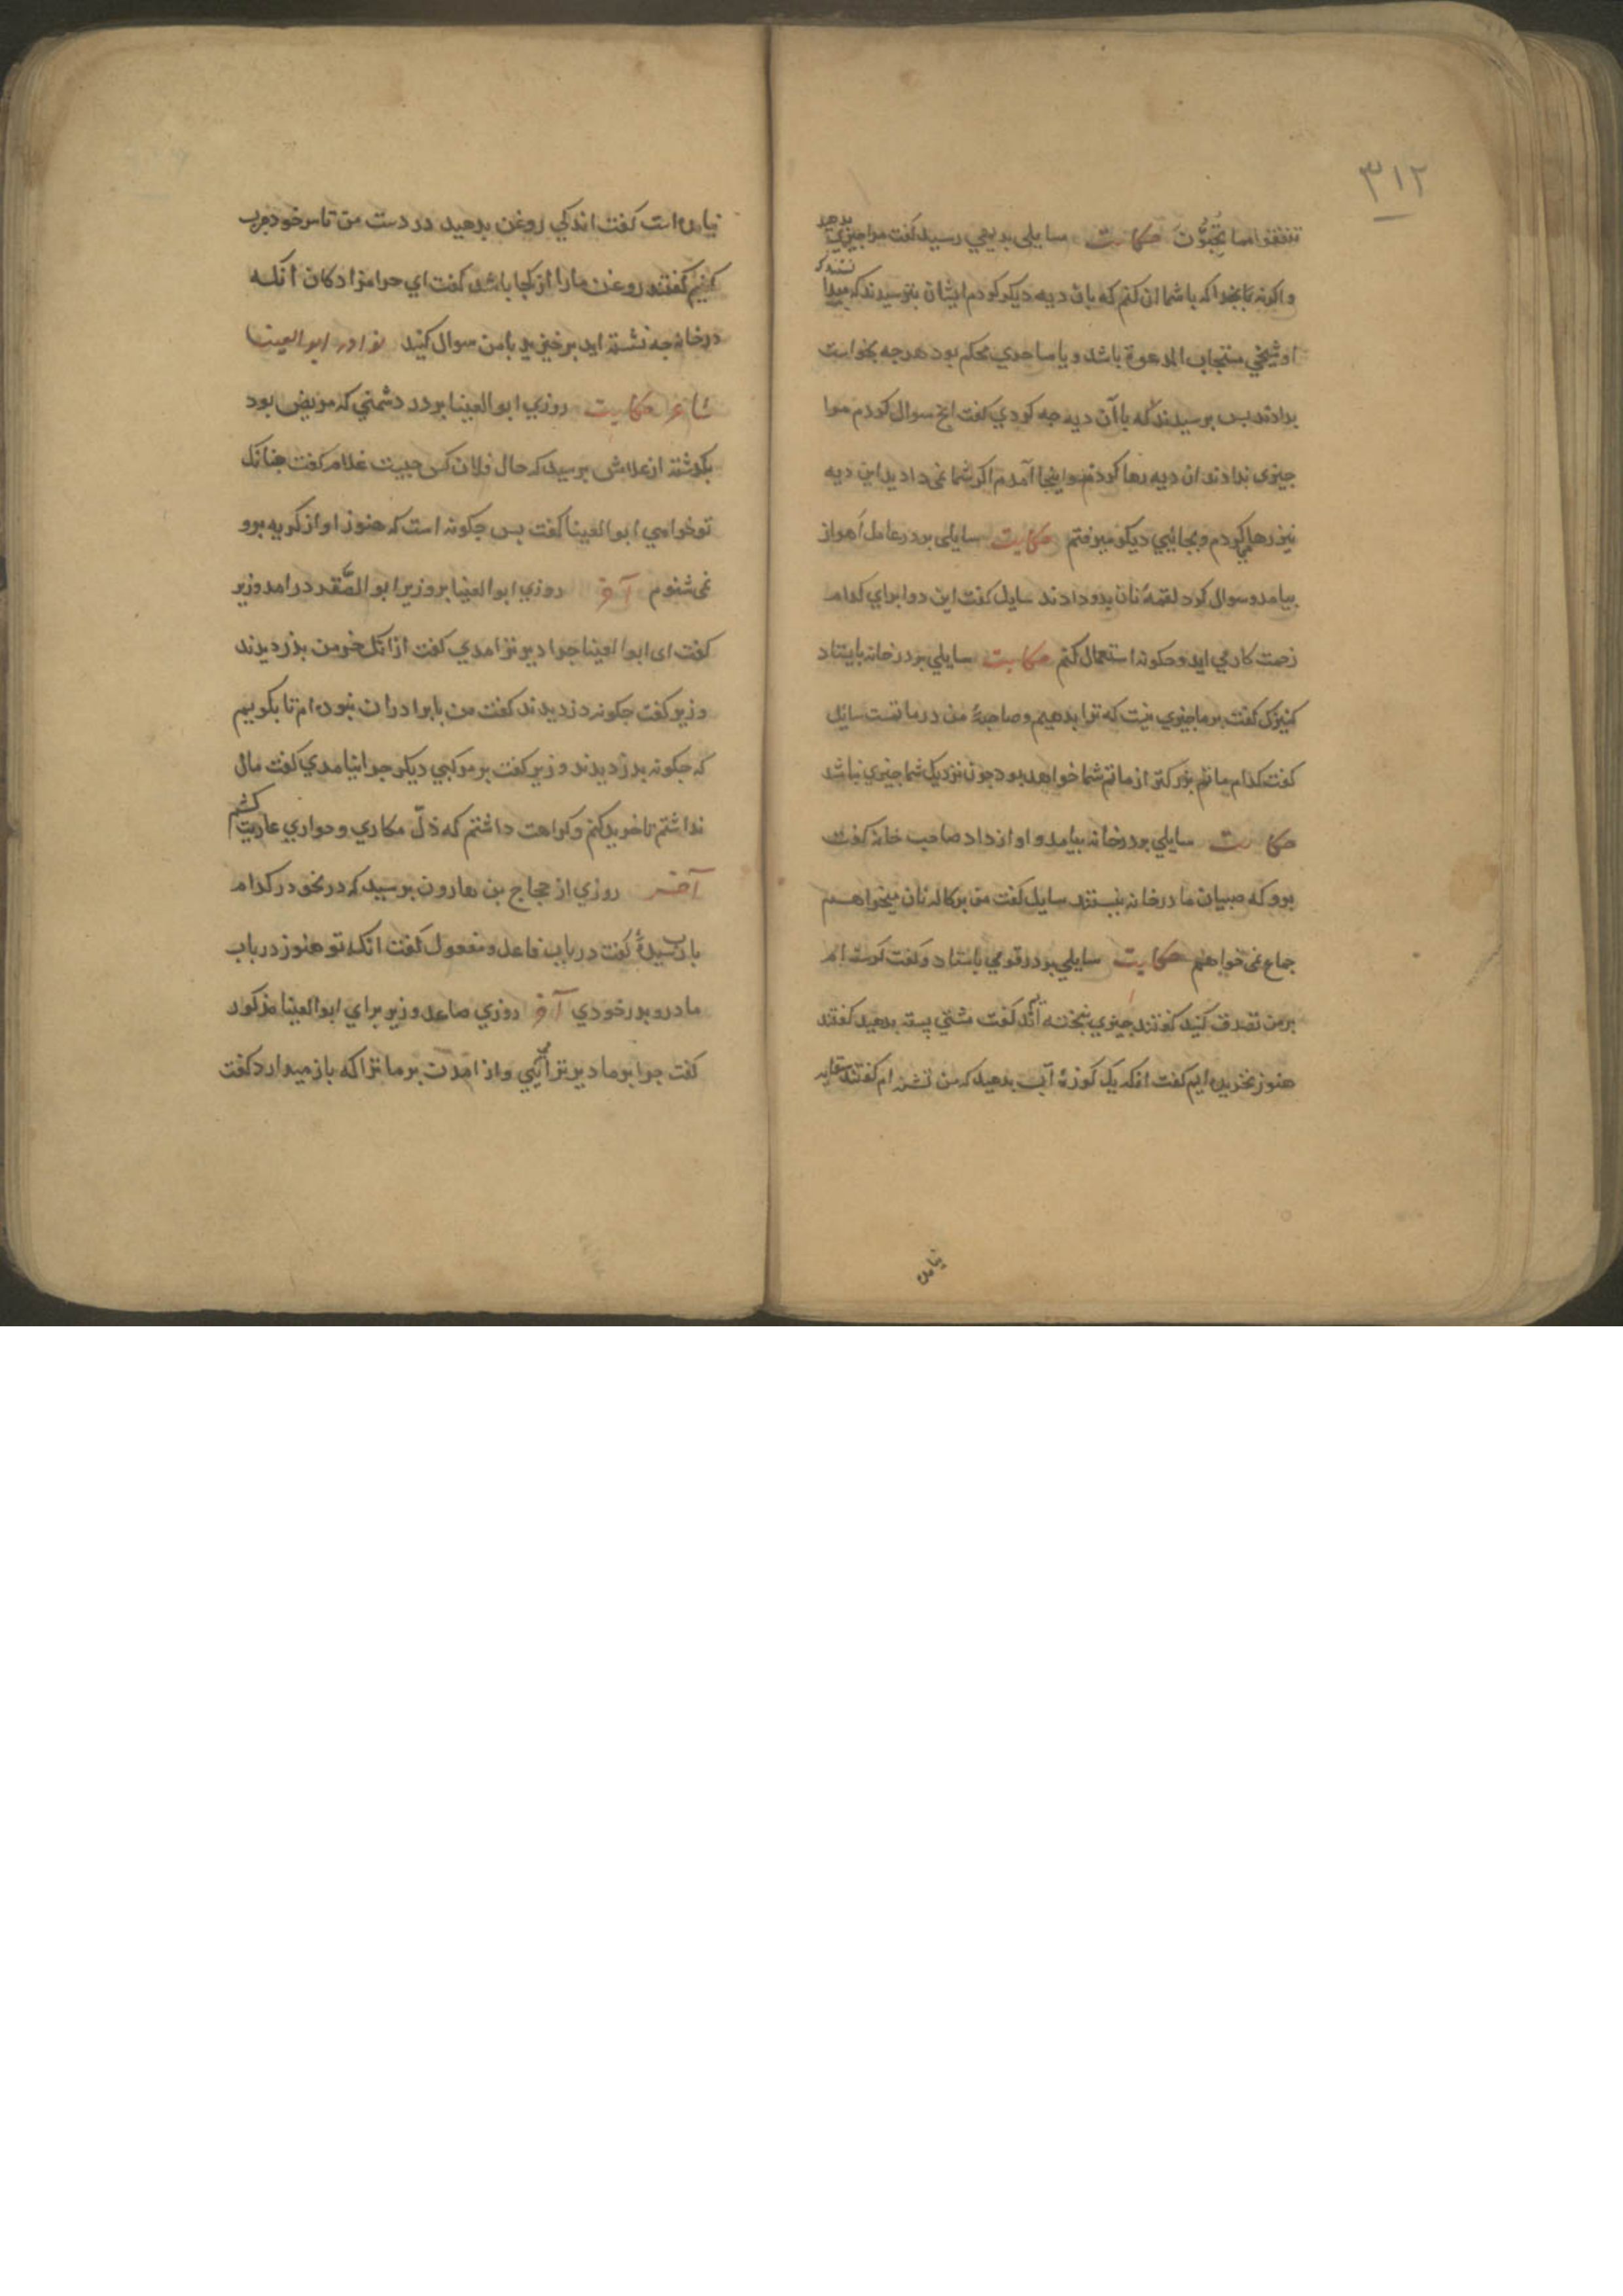 ٣١٢
تنفقوا مما تُحِبُّونَ حکایت سایلی بدیهی رسید کفت مرا چیزی بدهید
واکرنه بخدا که با شما ان کنم که بان دیه دیکر کردم ایشان بترسیدند که مبدا
او شیخی مستجاب الدعوة باشد و یا ساحری محکم بود هرچه بخواست
بدادند بس برسیدند که با آن دیه جه کردی کفت انج سوال کردم مرا
جیزی ندادند ان دیه رها کردم و اینجا آمدم اکر شما نمی دادید این دیه
نیز رها می کردم و بجائیی دیکر میرفتم حکایت سایلی بدر عامل اهواز
بیامد و سوال کرد لقمهٔ نان بدو دادند سایل کفت این دوا برای کدام
زحمت کار می اید و جکونه استعمال کنم حکایت سایلی بدرخانه بایستاد
کنیزک کفت بر ما جیزی نیست که ترا بدهیم و صاحبهٔ من در ماتمست سایل
کفت کدام ماتم بزرکتر از ماتم شما خواهد بود جون نزدیک شما جیزی نباشد
حکایت سایلی بدرخانه بیامد و اواز داد صاحب خانه کفت
برو که صبیان ما درخانه نیستند سایل کفت من برکاله نان میخواهم
جماع نمی خواهم حکایت سایلی بدر قومی بایستاد و کفت کرسنه ام
بر من تصدق کنید کفتند جیزی نبخته اند کفت مشتی بسته بدهید کفتند
هنوز نخریده ایم کفت انکه یک کوزهٔ آب بدهید که من تشنه ام کفتند سقا به
نیامده
نیامده است کفت اندکی روغن بدهید در دست من تا سر خود چرب
کنم کفتند روغن ما را از کجا باشد کفت ای حرامزادکان انکه
درخانه جه نشسته اید برخیزید با من سوال کنید نوادر ابو العینا
شاعر حکایت روزی ابو العینا بدر دشمنی که مریض بود
بکذشت از غلامش برسید که حال فلان کس چیست غلام کفت جنانک
تو خواهی ابو العینا کفت بس جکونه است که هنوز اواز کریه برو
نمی شنوم آخر روزی ابو العینا بر وزیر ابو الصَّقر درامد وزیر
کفت ای ابو العینا جرا دیر تر امدی کفت از انک خر من بدزدیدند
وزیر کفت جکونه دزدیدند کفت من با برادران نبوده ام تا بکویم
که جکونه بدزدیدند وزیر کفت بر مرکبی دیکر جرا نیامدی کفت مال
نداشتم تا خرید کنم و کراهت داشتم که ذلّ مکاری و خواری عاریت کشم
آخر روزی از حجاج بن هارون برسید که در نحو در کدام
باب رسیدهٔ کفت در باب فاعل و مفعول کفت انکه تو هنوز در باب
مادر و بدر خودی آخر روزی صاعد وزیر برای ابو العینا مذکور
کفت جرا بر ما دیر تر آیی و از امدن بر ما ترا که باز میدارد کفت